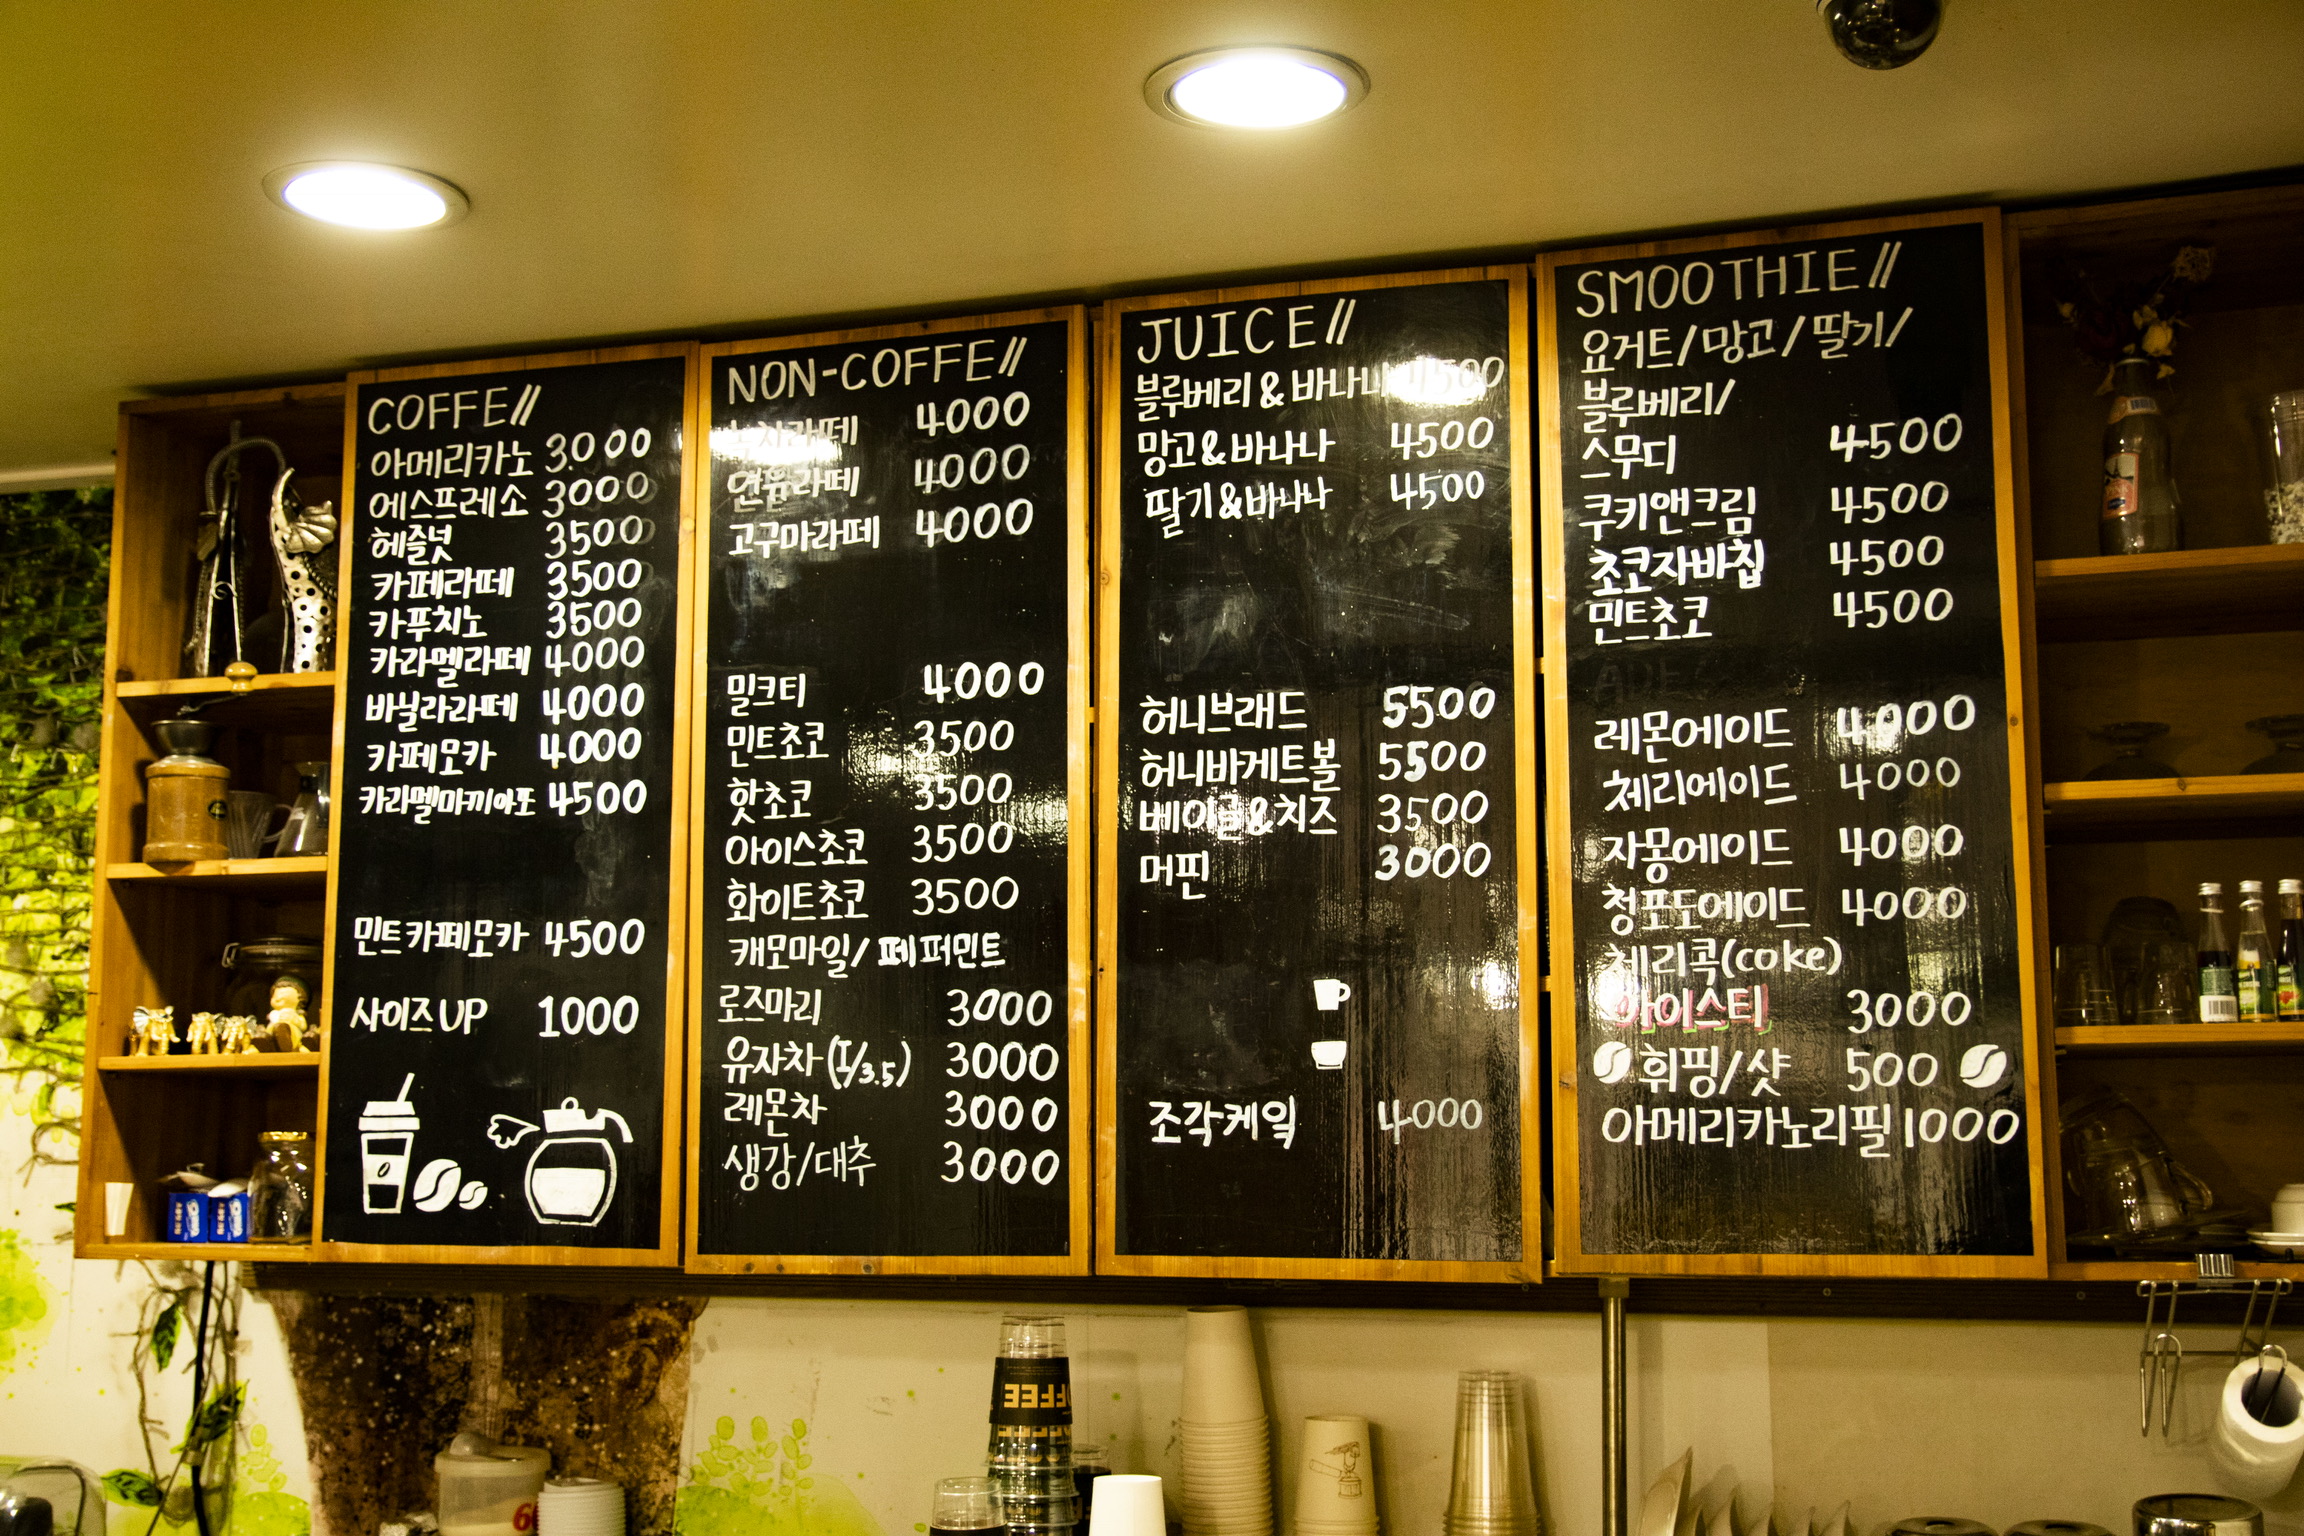 COFFE//
아메리카노 3.000
에스프레소 3000
헤즐넛 3500
카페라떼 3500
카푸치노 3500
카라멜라떼 4000
바닐라라떼 4000
카페모카 4000
카라멜마끼아또 4500
민트카페모카 4500
사이즈UP 1000
NON-COFFE//
녹차라떼 4000
연유라떼 4000
고구마라떼 4000
밀크티 4000
민트초코 3500
핫초코 3500
아이스초코 3500
화이트초코 3500
캐모마일/페퍼민트
로즈마리 3000
유자차(I/3.5) 3000
레몬차 3000
생강/대추 3000
JUICE//
블루베리&바나나 4500
망고&바나나 4500
딸기&바나나 4500
허니브래드 5500
허니바게트볼 5500
베이글&치즈 3500
머핀 3000
조각케잌 4000
SMOOTHIE//
요거트/망고/딸기/
블루베리/
스무디 4500
쿠키앤크림 4500
초코자바칩 4500
민트초코 4500
ADE
레몬에이드 4000
체리에이드 4000
자몽에이드 4000
청포도에이드 4000
체리콕(coke)
아이스티 3000
휘핑/샷 500
아메리카노리필 1000